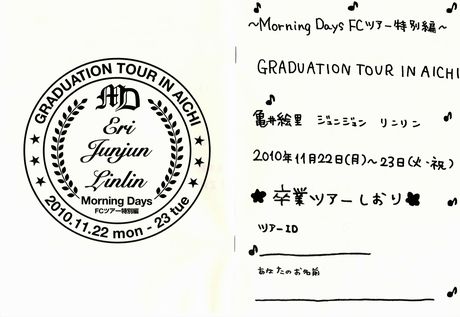 GRADUATION TOUR IN AICHI
MD
Eri
Junjun
Linlin
Morning Days
FCツアー特別編
2010.11.22 mon - 23 tue
~Morning Days FCツアー特別編~
GRADUATION TOUR IN AICHI
亀井絵里 ジュンジュン リンリン
2010年11月22日(月)~23日(火・祝)
卒業ツアーしおり
ツアーID
あなたのお名前